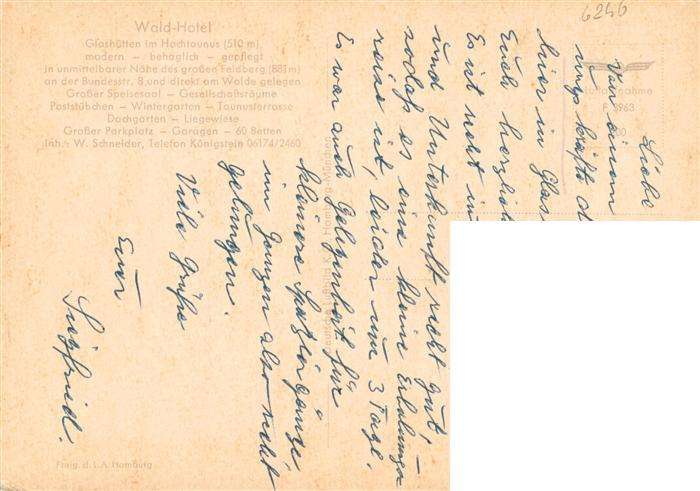 Wald-Hotel
Glashütten im Hochtaunus (510 m)
modern – behaglich – gepflegt
in unmittelbarer Nähe des großen Feldberg (881 m)
an der Bundesstr. 8 und direkt am Walde gelegen
Großer Speisesaal – Gesellschaftsräume
Poststübchen – Wintergarten – Taunusterrasse
Dachgarten – Liegewiese
Großer Parkplatz – Garagen – 60 Betten
Inh.: W. Schneider, Telefon Königstein 06174/2460
6246
Liebe
Von einem
hier in Glas
Euch herzlich
Es ist nett im
und Unterkunft recht gut, –
sodaß es eine kleine Erholungs
reise ist, leider nur 3 Tage.
Es war auch Gelegenheit für
kleinere Spaziergänge,
im ganzen also nett
gelungen.
Viele Grüße
Euer
Siegfried.
Freig. d. L.A. Hamburg